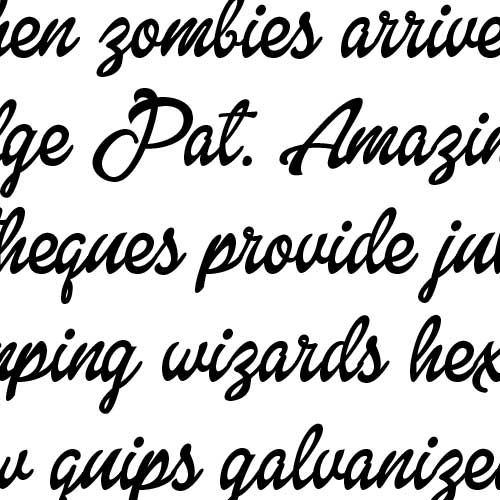 hen zombies arrive
lge Pat. Amazin
theques provide jul
mping wizards hex
w quips galvanize